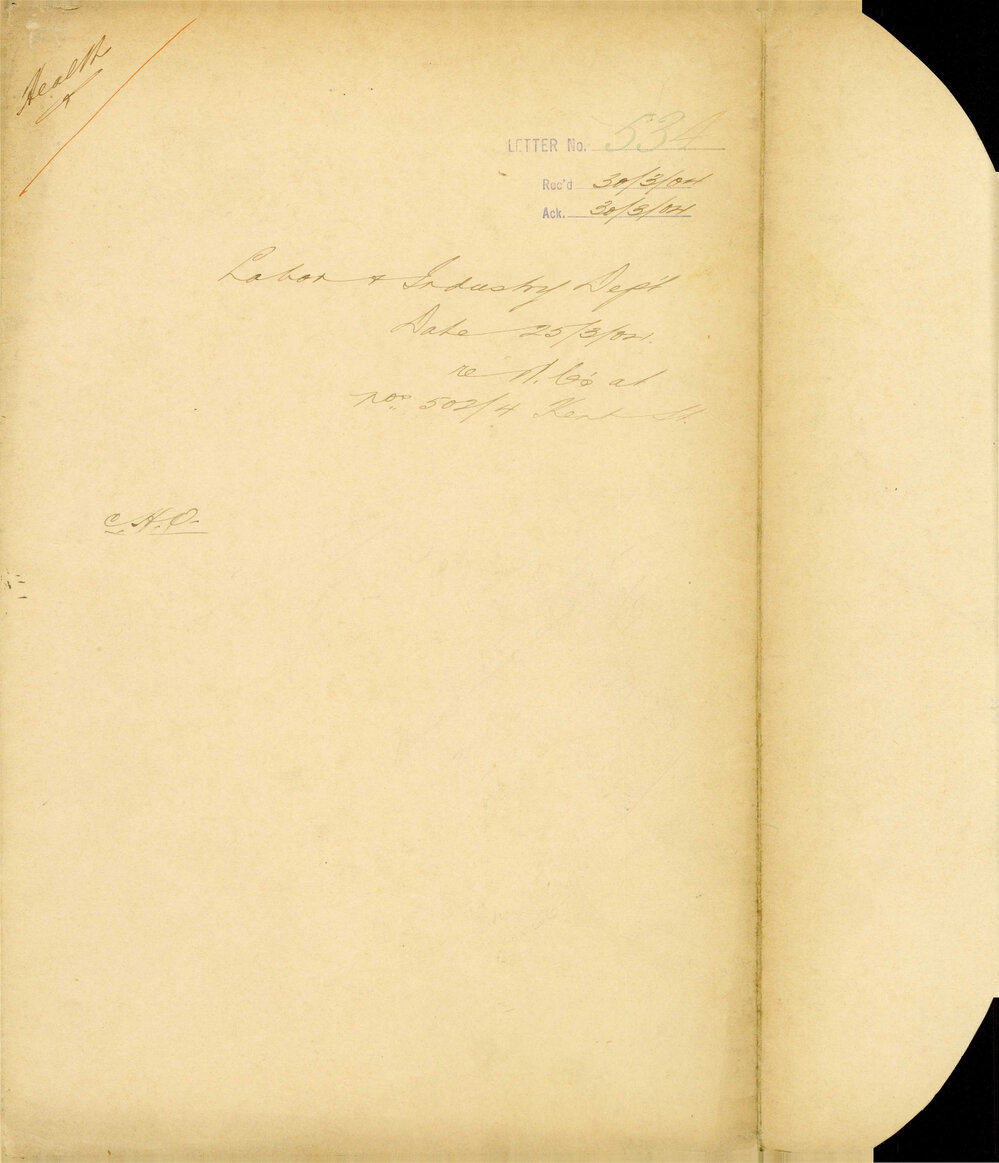 Health
LETTER No. 534
Rec'd 30/3/04
Ack. 30/3/04
Labor & Industry Dep't
Date 25/3/04.
re W.C's at
nos. 502/4 Kent St.
C.H.O.